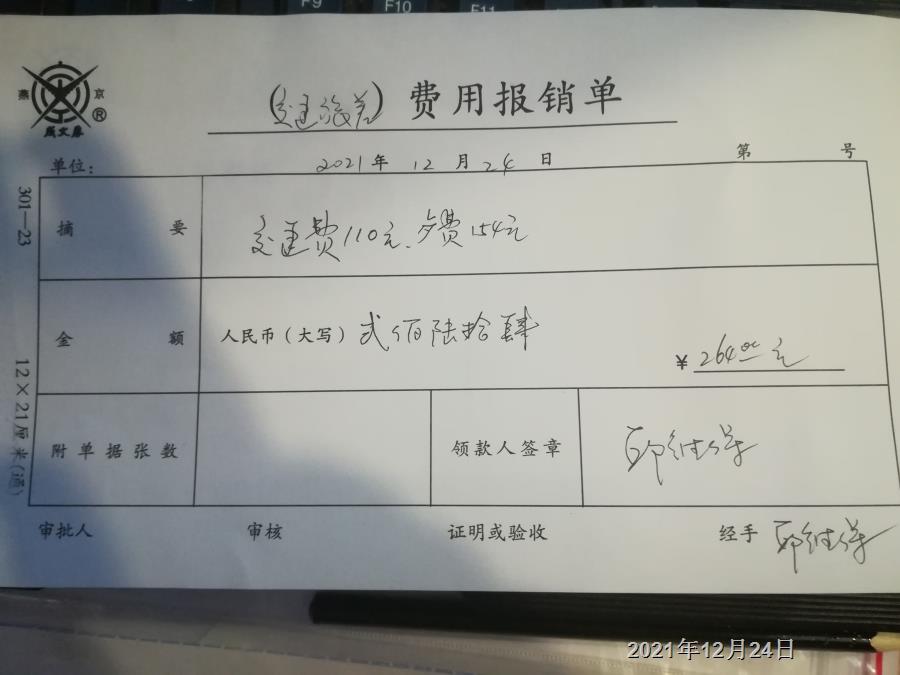 F9 F10 F11
燕 京
®
成文厚
(交通旅差) 费用报销单
单位: 2021年 12月 24日 第 号
301—23
摘 要 交通费110元、餐费154元
金 额 人民币(大写) 贰佰陆拾肆 ¥ 264.00元
12×21厘米(通)
附单据张数 领款人签章
审批人 审核 证明或验收 经手
2021年12月24日